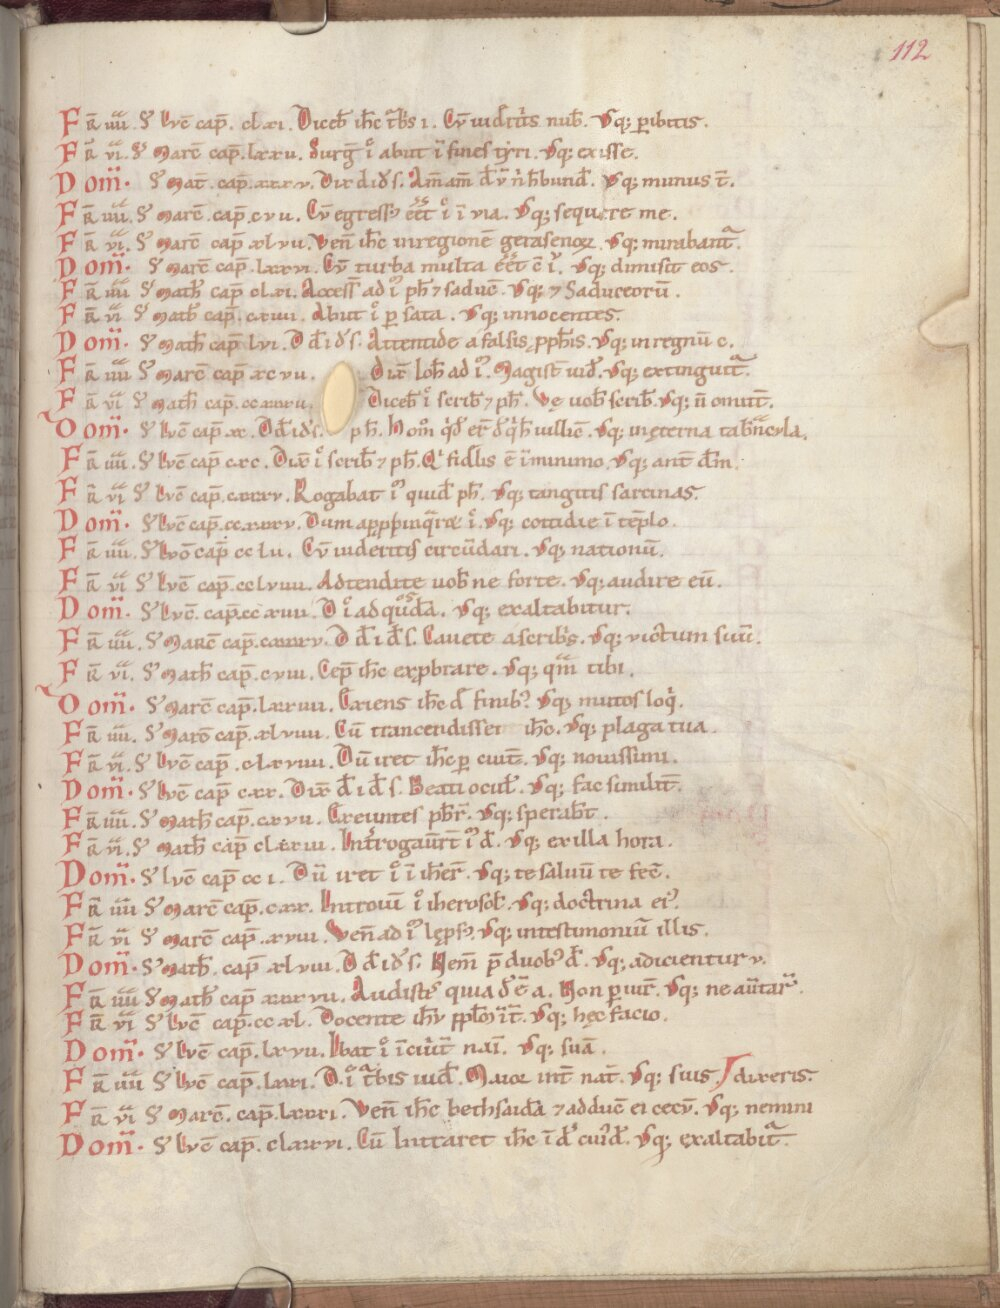 112
FR̄ iiii. S̄ lvc̄ cap̄. cl xi. Diceb̄ ih̄c t̄bis i. Cv̄ uid'itis nub̄. Vsq; p̄ibitis.
FR̄ vi. S̄ marc̄ cap̄. lxxv. Surḡ i̊ abiit ī fines tyri. Vsq; exisse.
Dom̄. S̄ mat̄. cap̄. xxxv. Dix̄ d̄ i d̄ s̄. Vsq; munus t̄.
FR̄ iiii. S̄ marc̄ cap̄. cvii. Cv̄ egress' eēt i̊ ī via. Vsq; sequere me.
FR̄ vi. S̄ marc̄ cap̄. xlvii. Ven̄ ih̄c in regionē gerasenoꝝ. Vsq; mirabant̄.
Dom̄. S̄ marc̄ cap̄. lxxvi. Cv̄ turba multa eēt c̄ i'. Vsq; dimisit eos.
FR̄ iiii S̄ math̄ cap̄ clxi. Access̄ ad i' ph̄ ⁊ saduc̄. Vsq; ⁊ Saduceorū.
FR̄ vi S̄ math̄ cap̄. cxiiii. Abiit i̊ p̄ sata. Vsq; innocentes.
Dom̄. S̄ math̄ cap̄. lvi. D d̄ i d̄ s̄. Attentide a falsis pph̄is. Vsq; in regnū c.
FR̄ iiii S̄ marc̄ cap̄. xcvii. Dix̄ Ioh̄ ad i'. Magist̄ uid'. Vsq; extinguit̄.
FR̄ vi S̄ math̄ cap̄. ccxxxvii. Diceb̄ i̊ scrib̄ ⁊ ph̄. Vę uob̄ scrib̄. Vsq; n̄ omitt̄.
Dom̄. S̄ lvc̄ cap̄. xc. D d̄ i d̄ s̄. ph̄. Vsq; in ęterna tab̄nacula.
FR̄ iiii. S̄ lvc̄ cap̄ cxc. Dix̄ i̊ scrib̄ ⁊ ph̄. Q' fidlis ē ī minimo. Vsq; ant̄ dm̄.
FR̄ vi S̄ lvc̄ cap̄. cxxxv. Rogabat i' quid̄ ph̄. Vsq; tangitis sarcinas.
Dom̄. S̄ lvc̄ cap̄. ccxxxv. Dum apppinq̄re i̊. Vsq; cottidie ī tēplo.
FR̄ iiii. S̄ lvc̄ cap̄ cclv. Cv̄ uideritis circūdari. Vsq; nationū.
FR̄ vi S̄ lvc̄ cap̄. cclviiii. Adtendite uob̄ ne forte. Vsq; audire eū.
Dom̄. S̄ lvc̄ cap̄. ccxiiii. D i̊ ad quosdā. Vsq; exaltabitur.
FR̄ iiii. S̄ marc̄ cap̄. cxxxv. D d̄ i d̄ s̄. Cauete a scrib's. Vsq; victum suū.
FR̄ vi. S̄ math̄ cap̄. cviii. Cep̄ ih̄c exp̄brare. Vsq; qm̄ tibi.
Dom̄. S̄ marc̄ cap̄. lxxiiii. Exiens ih̄c d̄ finib'. Vsq; mutos loq̄.
FR̄ iiii. S̄ marc̄ cap̄. xlviiii. Cū trancendisset ih̄c. Vsq; plaga tua.
FR̄ vi. S̄ lvc̄ cap̄. clxviiii. Dū iret ih̄c p̄ ciuit̄. Vsq; nouissimi.
Dom̄. S̄ lvc̄ cap̄ cxx. Dix̄ d̄ i d̄ s̄. Beati ocul̄. Vsq; fac similit̄.
FR̄ iiii. S̄ math̄ cap̄. cxvii. Exeuntes ph̄r̄. Vsq; sperab̄t.
FR̄ vi. S̄ math̄ cap̄ clxxiii. Int̄rogaūrt̄ i' d̄. Vsq; ex illa hora.
Dom̄. S̄ lvc̄ cap̄ cci. Dū iret i̊ ī ih̄er̄. Vsq; te saluū te fec̄.
FR̄ iiii S̄ marc̄ cap̄. cxx. Introiuit̄ i̊ iherosol̄. Vsq; doctrina ei'.
FR̄ vi S̄ marc̄ cap̄. xviii. Ven̄ ad i' lęps'. Vsq; in testimoniū illis.
Dom̄. S̄ math̄. cap̄ xlviii. D d̄ i d̄ s̄. Nem̄ p̄ duob' d̄. Vsq; adicientur v.
FR̄ iiii S̄ math̄ cap̄ xxxvii. Audist' quia d̄ ē a. Non p̄iur̄. Vsq; ne aūtar̄.
FR̄ vi. S̄ lvc̄ cap̄. ccxl. Docente ih̄v ppl̄m ī t̄. Vsq; hęc facio.
Dom̄. S̄ lvc̄ cap̄. lxvii. Ibat i̊ ī ciuit̄ naī. Vsq; suā.
FR̄ iiii S̄ lvc̄ cap̄. lxxi. D. i̊ t̄bis iud̄. Maior int̄ nat̄. Vsq; suis / dixeris.
FR̄ vi S̄ marc̄. cap̄. lxxxi. Ven̄ ih̄c bethsaidā ⁊ adduc̄ ei cecv̄. Vsq; nemini
Dom̄. S̄ lvc̄ cap̄. clxxvi. Cū Intraret ih̄c ī d̄ cui'd̄. Vsq; exaltabit̄.